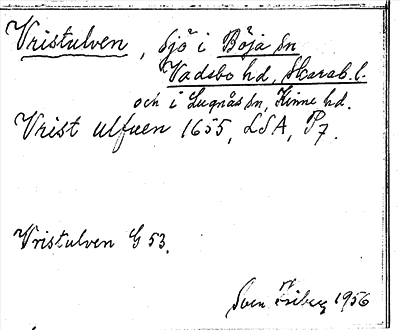 Vristulven, Sjö i Böja sn
Vadsbo hd, Skarab. l.
och i Lugnås sn, Kinne hd.
Vrist ulfuen 1655, LSA, P7.
Vristulven G 53.
Sven 1956